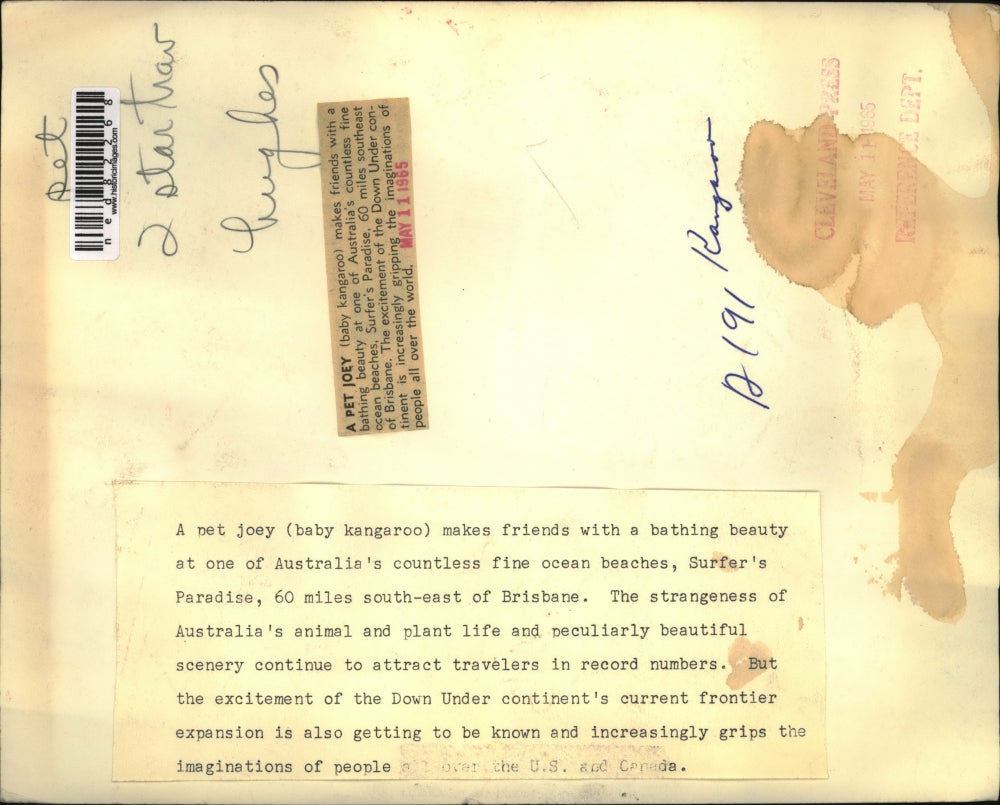 pet
ned82268
www.historicimages.com
2 star trav
hughes
A PET JOEY (baby kangaroo) makes friends with a
bathing beauty at one of Australia's countless fine
ocean beaches, Surfer's Paradise, 60 miles southeast
of Brisbane. The excitement of the Down Under con-
tinent is increasingly gripping the imaginations of
people all over the world. MAY 11 1965
A 191 Kangaroo
CLEVELAND PRESS
MAY 11 1965
REFERENCE DEPT.
A pet joey (baby kangaroo) makes friends with a bathing beauty
at one of Australia's countless fine ocean beaches, Surfer's
Paradise, 60 miles south-east of Brisbane. The strangeness of
Australia's animal and plant life and peculiarly beautiful
scenery continue to attract travelers in record numbers. But
the excitement of the Down Under continent's current frontier
expansion is also getting to be known and increasingly grips the
imaginations of people all over the U.S. and Canada.